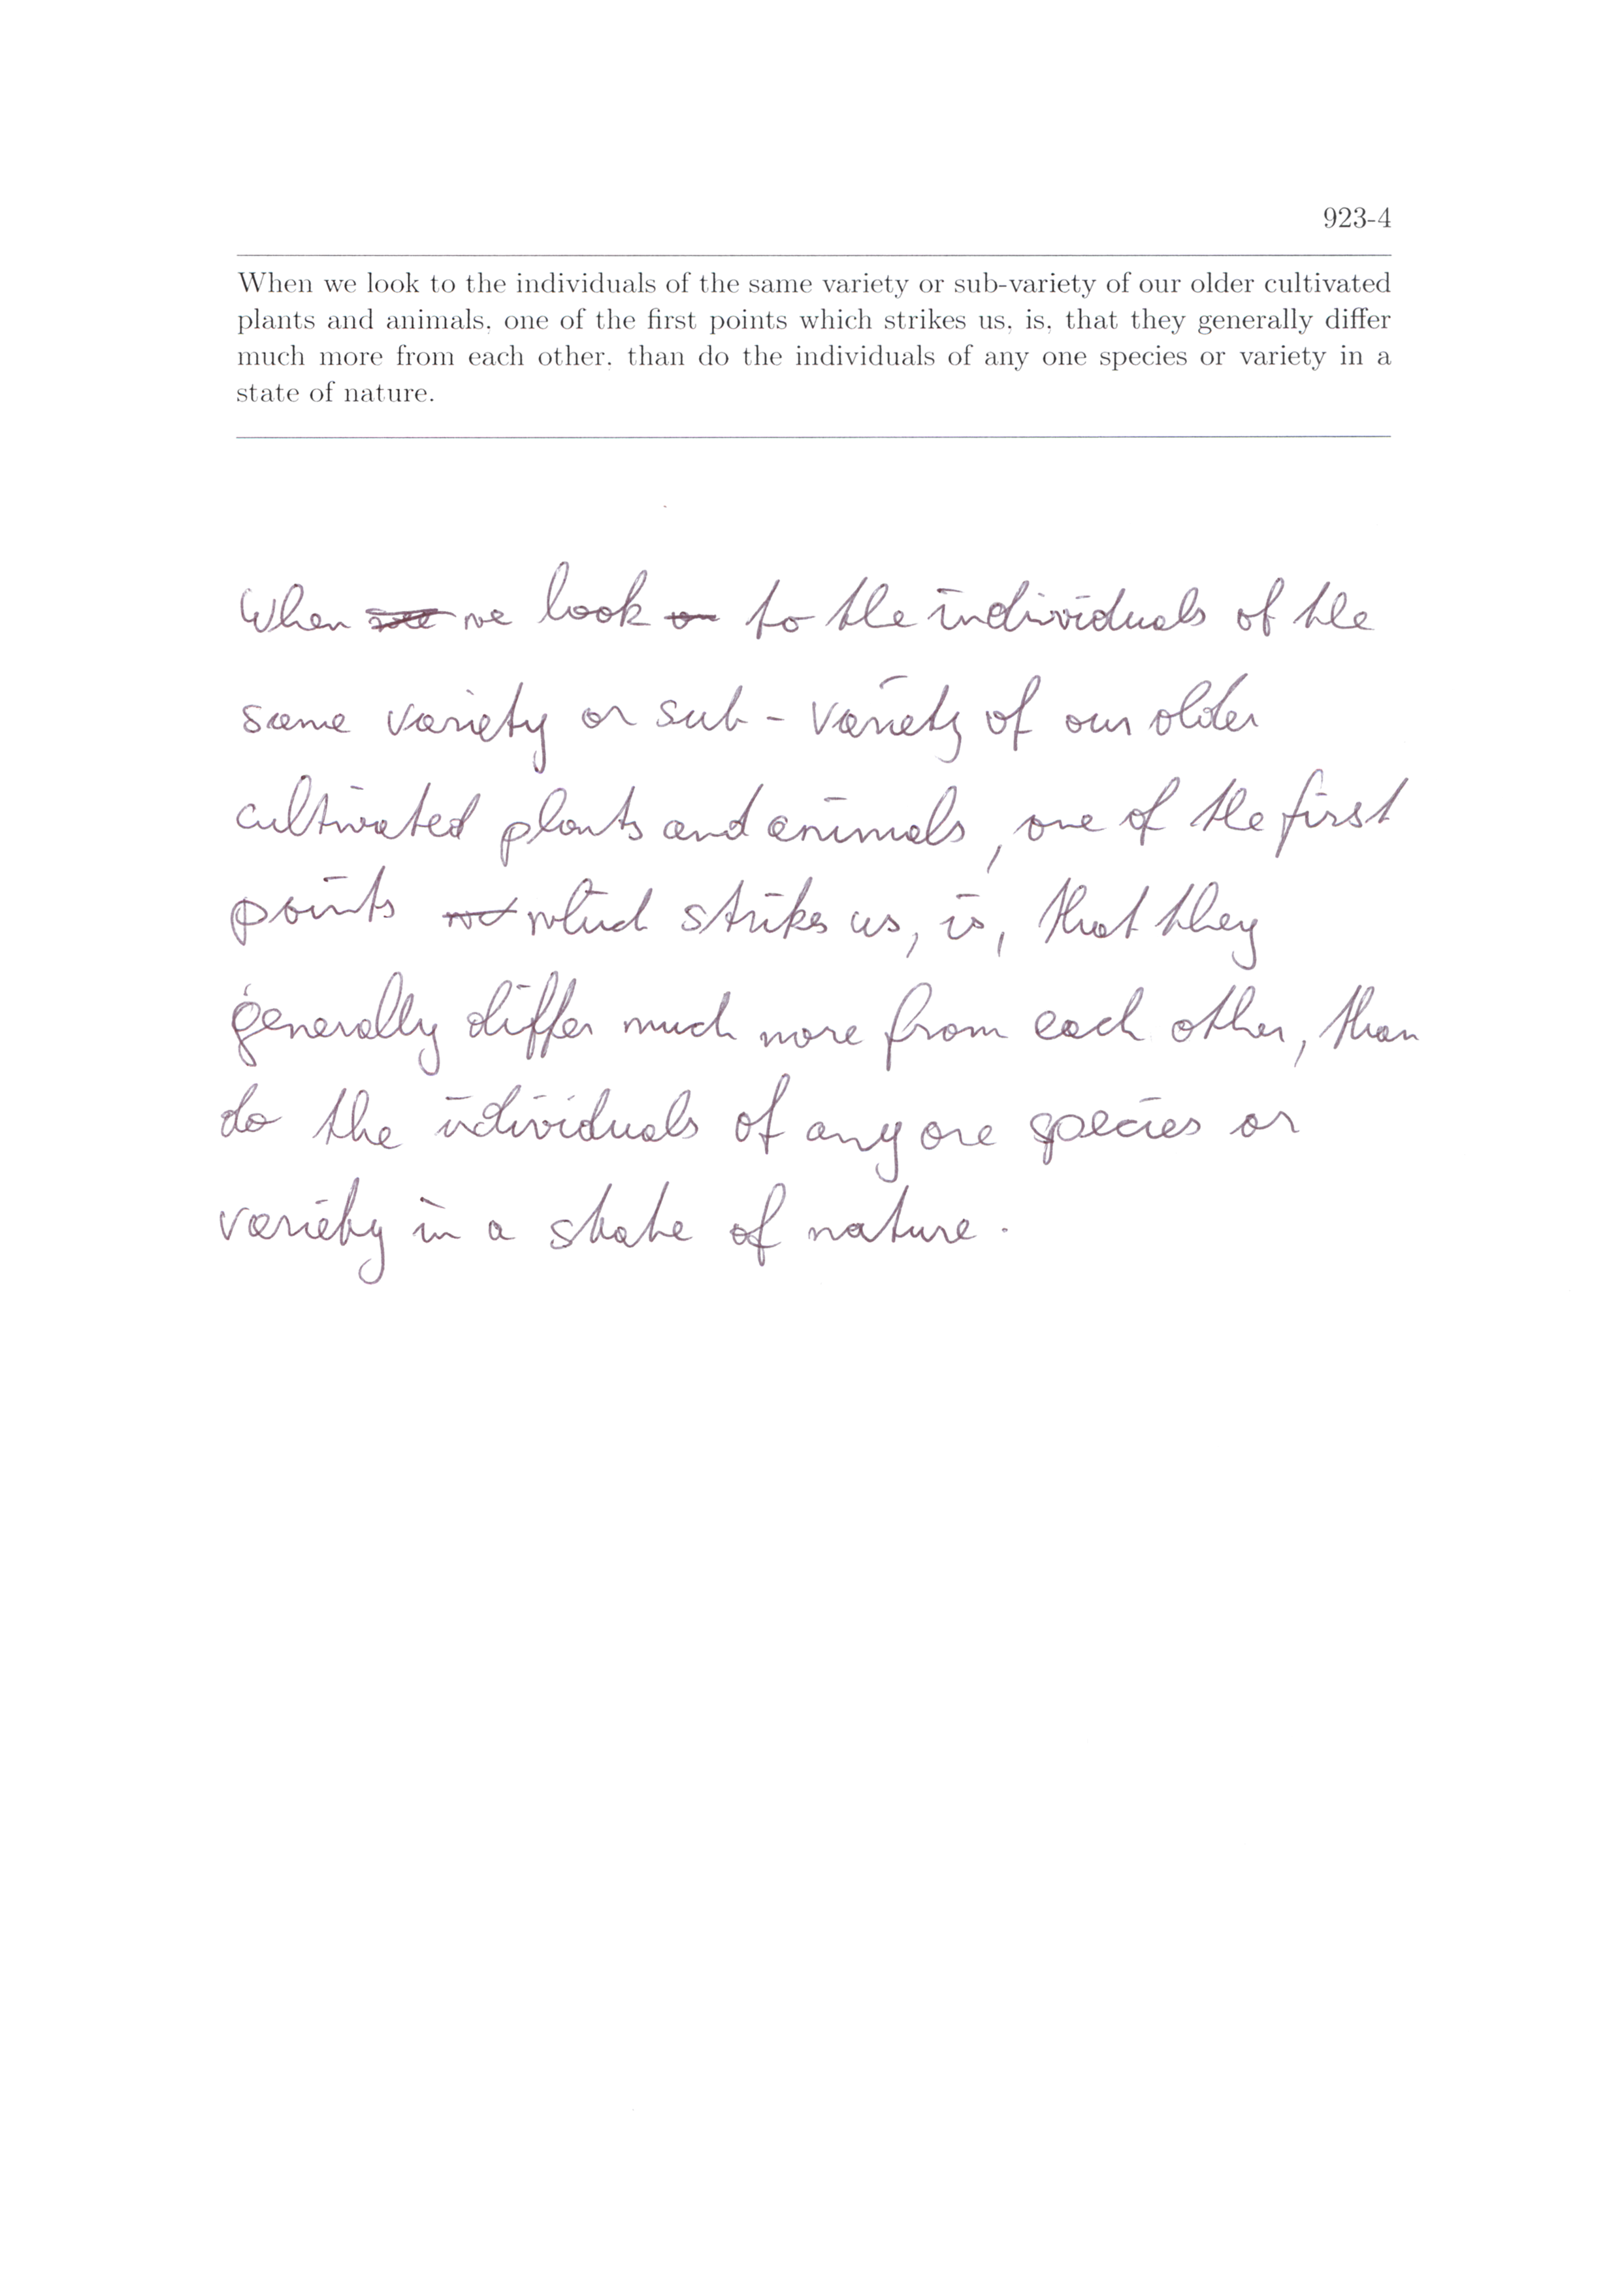 923-4
When we look to the individuals of the same variety or sub-variety of our older cultivated
plants and animals, one of the first points which strikes us, is, that they generally differ
much more from each other, than do the individuals of any one species or variety in a
state of nature.
When we look on to the individuals of the
same variety or sub-variety of our older
cultivated plants and animals, one of the first
points which strikes us, is, that they
generally differ much more from each other, than
do the individuals of any one species or
variety in a state of nature.